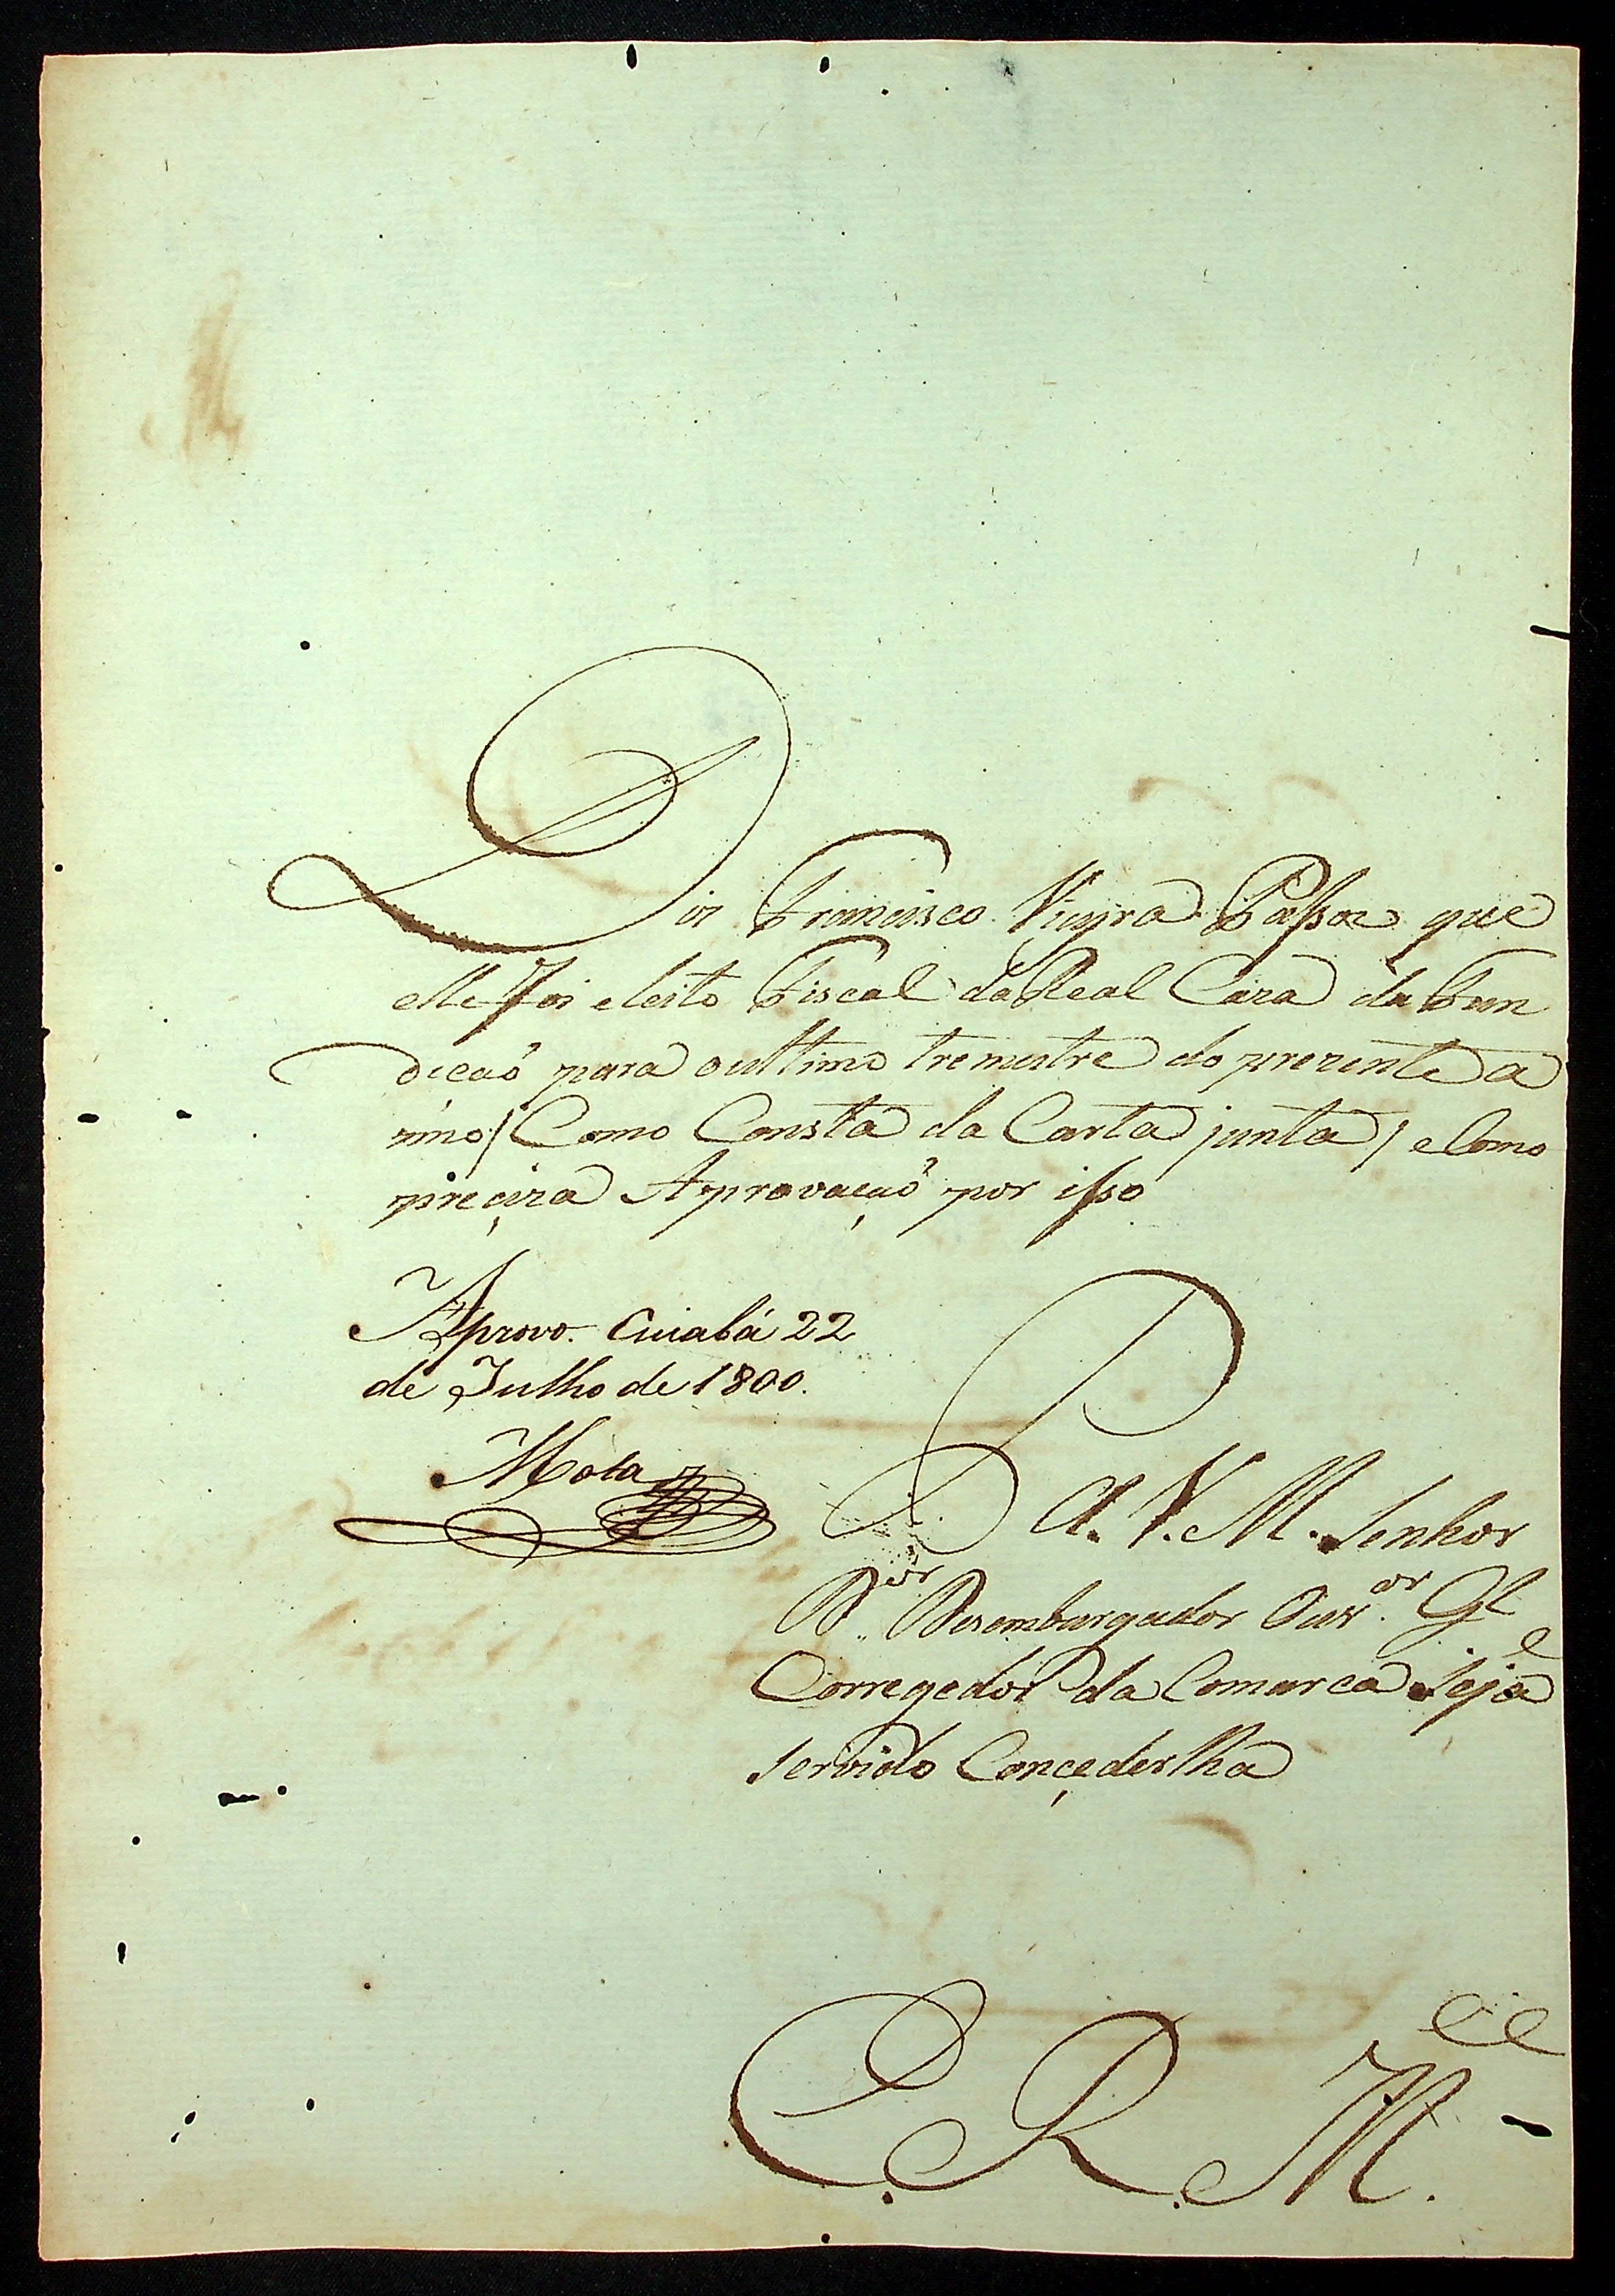 Diz Francisco Vieyra Passos que
elle foi eleito Fiscal da Real Caza da Fun
diçaõ para o ultimo tremestre do prezente a
nno / Como Consta da Carta junta / e Como
preçiza Aprovaçaõ por isso
Aprovo. Cuiabá 22
de Julho de 1800.
Mota
P. A. V. M. Senhor
D.or Dezembargador Ouv.or G.l e
Corregedor da Comarca seja
servido Conçederlha
E. R. M.ce